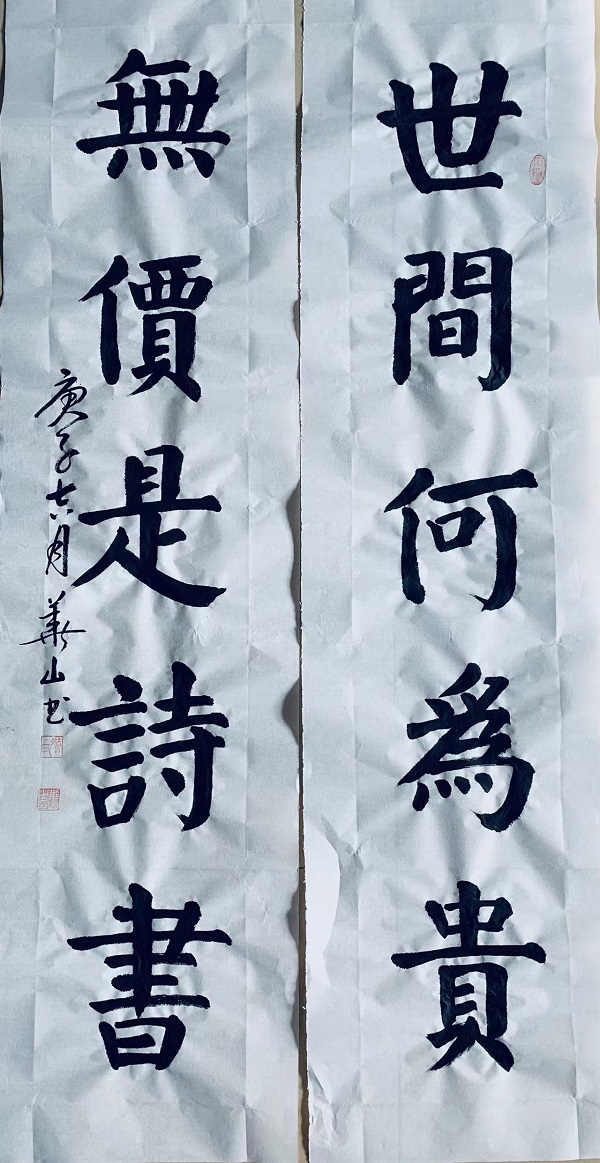 世間何為貴
無價是詩書
庚子六月華山书